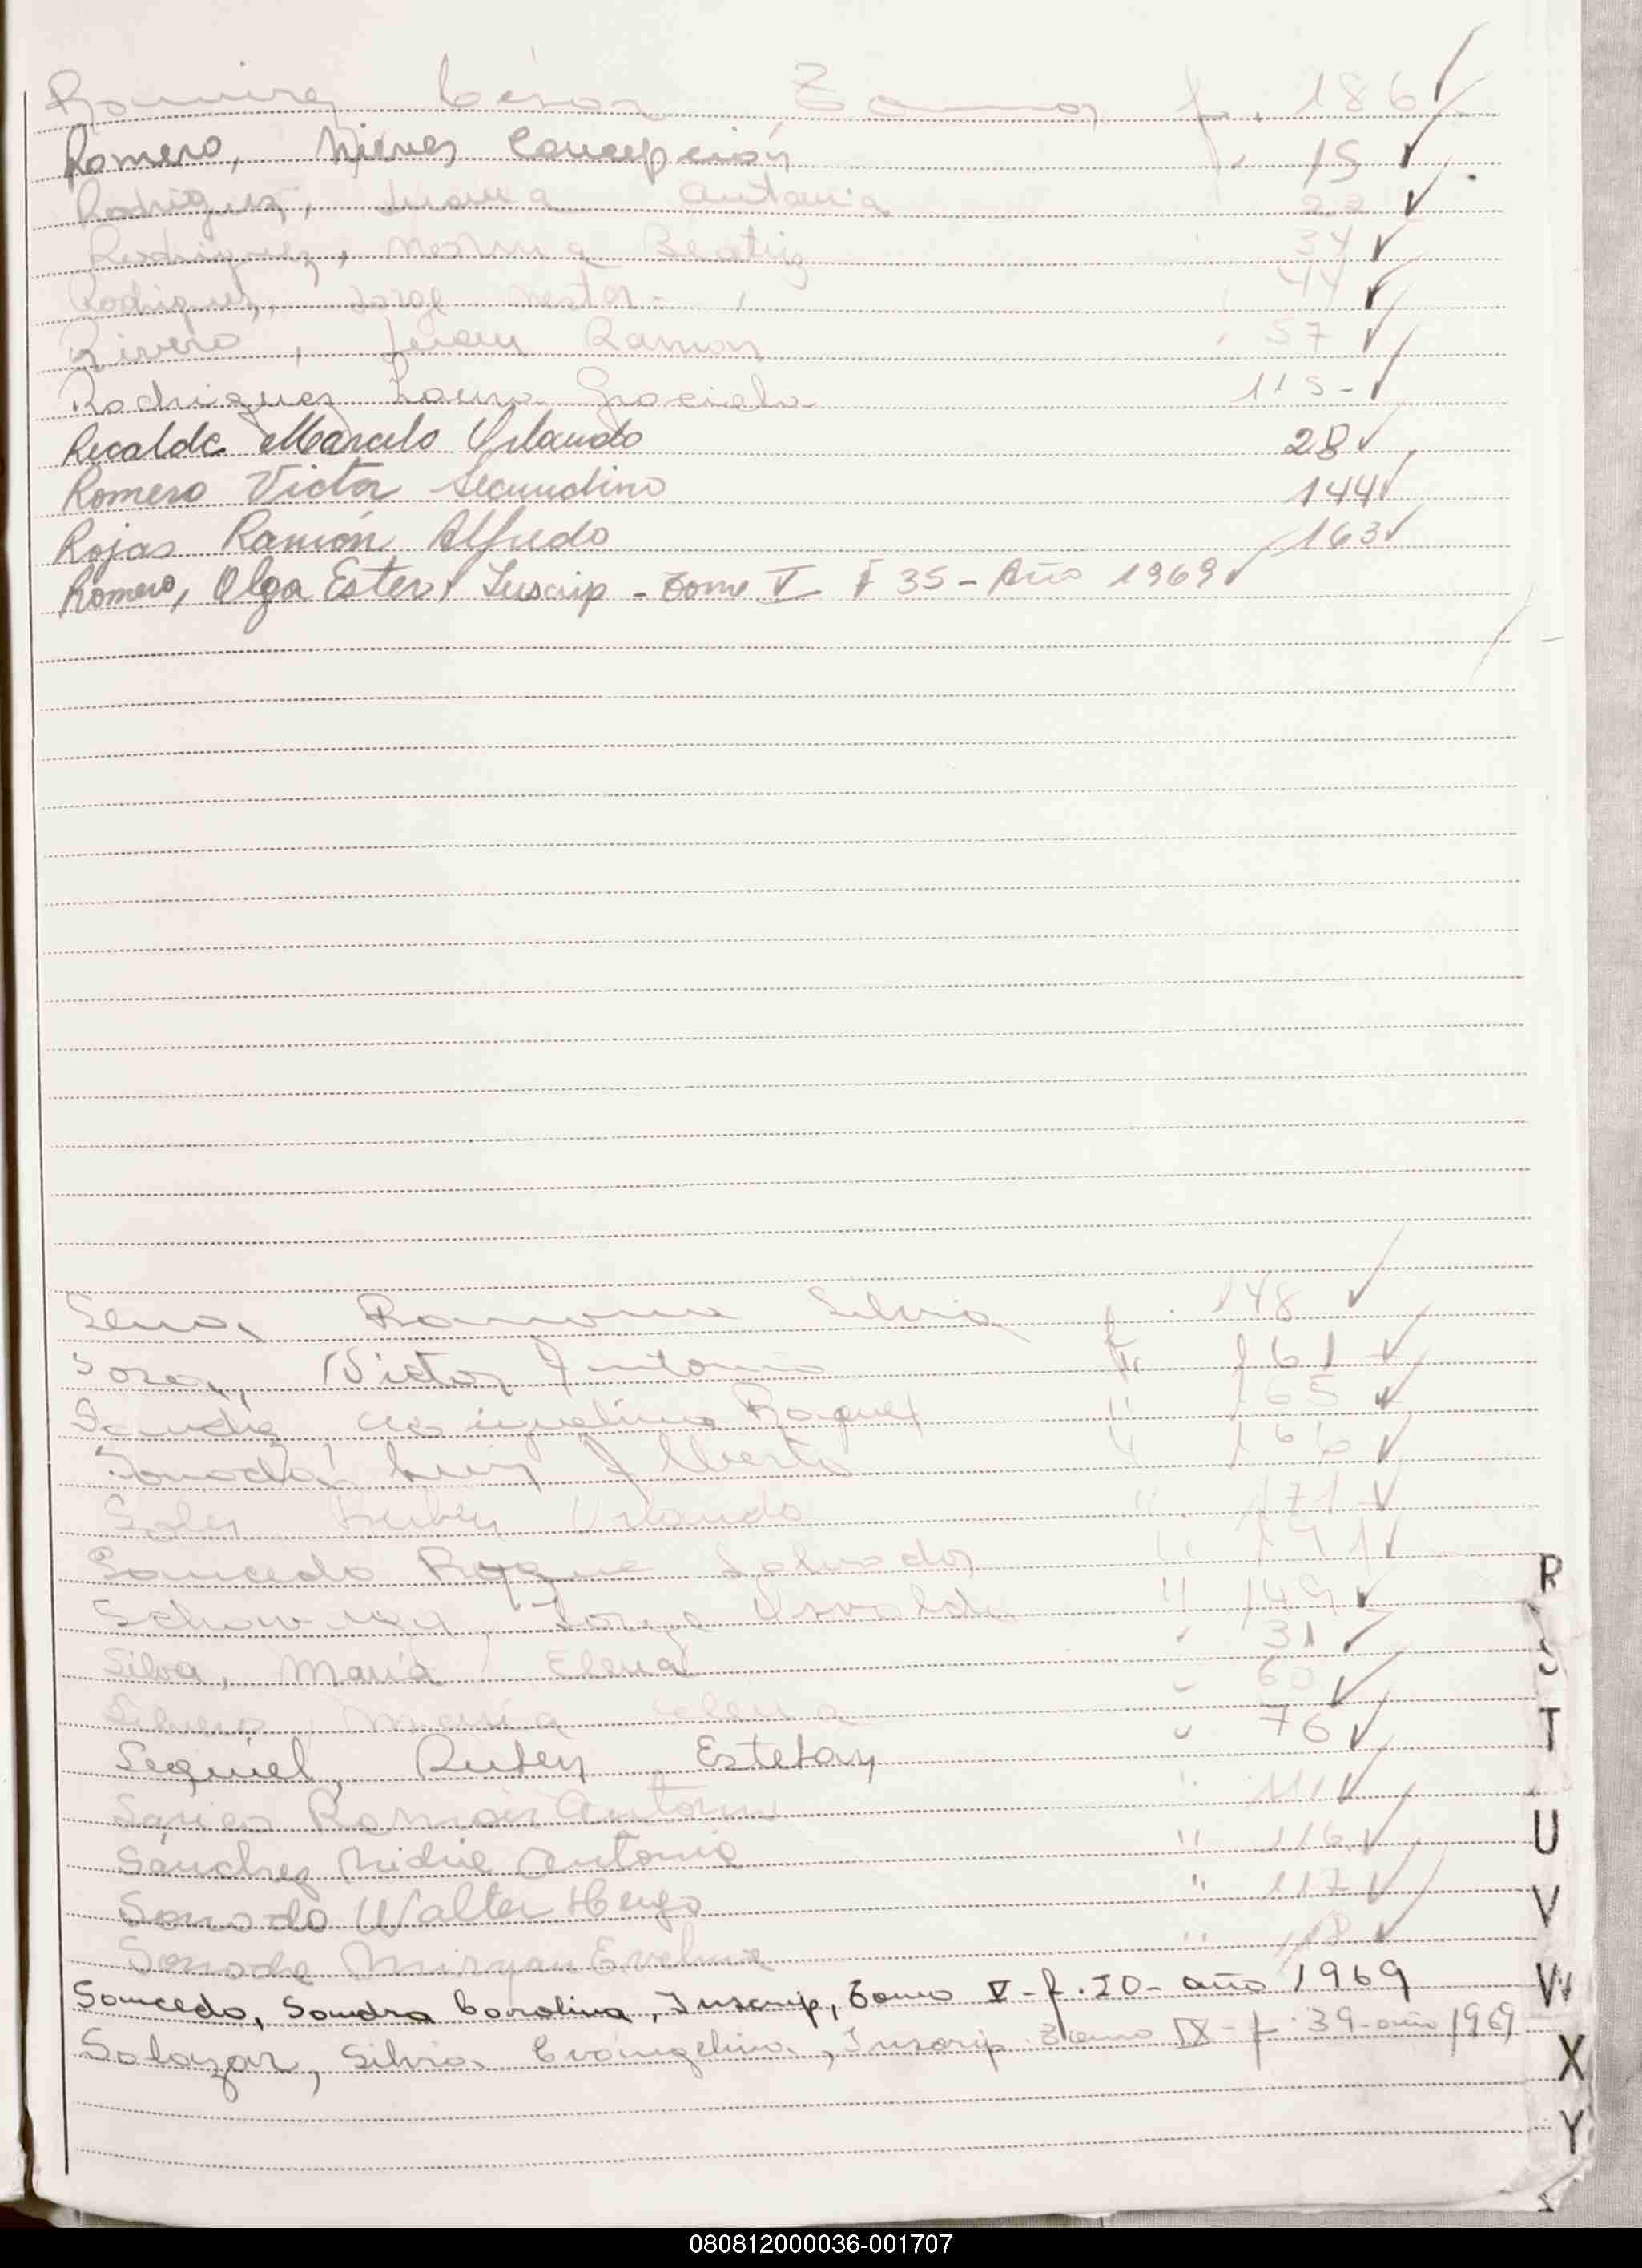 Ramirez César Tomas f. 186
Romero, Nieves Concepción f. 15
Rodriguez, Juana Antonia 22
Rodriguez, Norma Beatriz 34
Rodriguez, Jorge Nestor 44
Rivero, Juan Ramon 57
Rodriguez Laura Graciela 115
Recalde Marcelo Orlando 28
Romero Victor Secundino 144
Rojas Ramón Alfredo 163
Romero, Olga Ester, Inscrip - Tomo V F 35 - Año 1969
Sena, Ramona Silvia f. 148
Sosa, Victor Antonio f. 161
Roque 165
Luis Alberto " 166
Ruben Orlando " 171
Saucedo Roque Salvador " 191
Jorge Osvaldo " 149
Silva, María Elena " 31
María Elena " 60
Sequiel, Ruben Esteban " 76
Ramón Antonio 111
Sánchez Nidia Antonia " 116
Walter Hugo " 117
Miryan Evelina " 118
Saucedo, Sandra Carolina, Inscrip, Tomo V - f. 20 - año 1969
Salazar, Silvia Evangelina, Inscrip Tomo IX - f. 39 - año 1969
R
S
T
U
V
W
X
Y
080812000036-001707